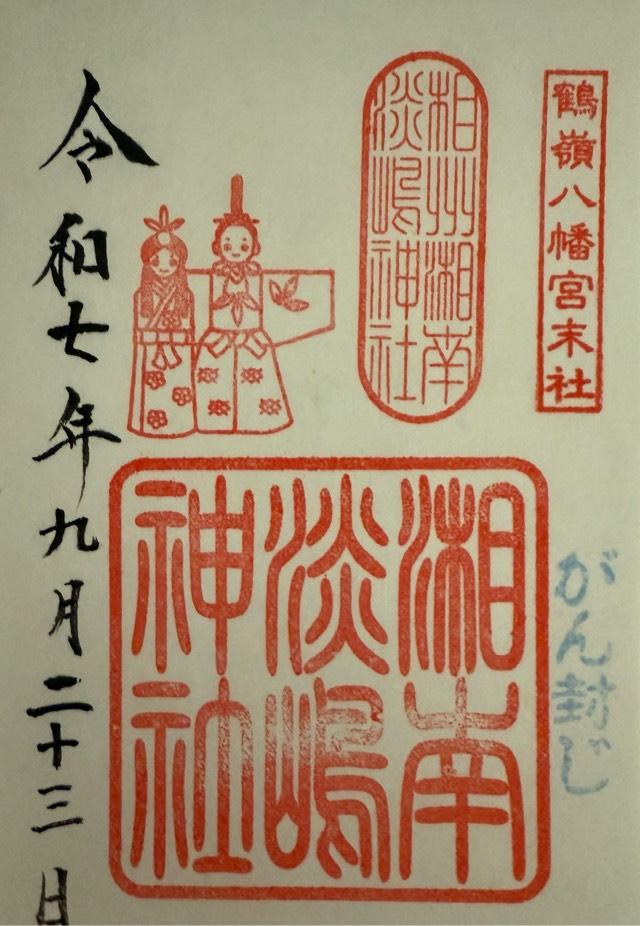 鶴嶺八幡宮末社
がん封じ
相州湘南
淡嶋神社
湘南
淡嶋
神社
令和七年九月二十三日